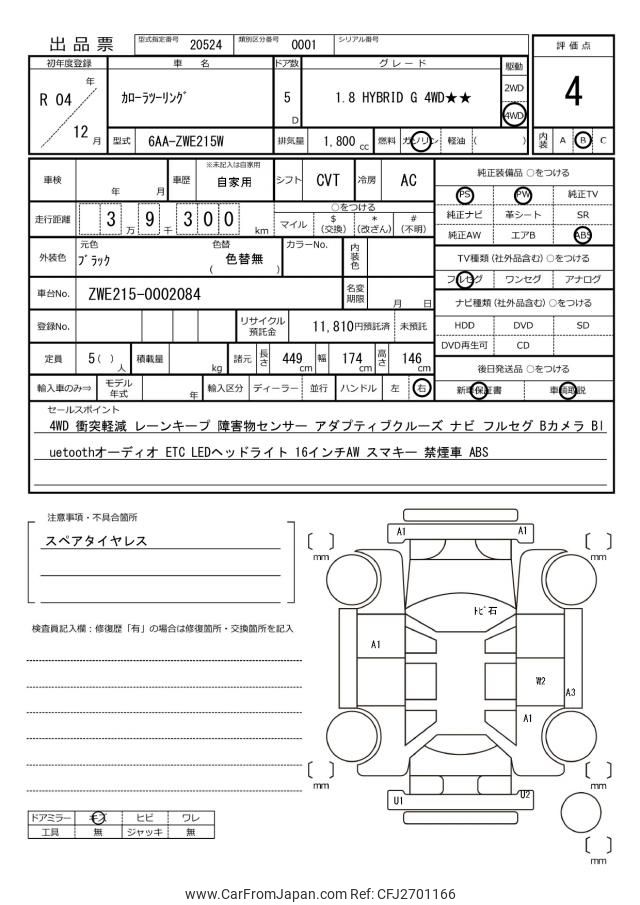 出品票 型式指定番号 20524 類別区分番号 0001 シリアル番号
評価点
4
内装 A B C
初年度登録 車名 ドア数 グレード 駆動
R 04 年 12 月
ｶﾛｰﾗﾂｰﾘﾝｸﾞ 5 D 1.8 HYBRID G 4WD★★ 2WD 4WD
型式 6AA-ZWE215W 排気量 1,800 cc 燃料 ガソリン 軽油 ( )
車検 年 月 車歴 ※未記入は自家用 自家用 シフト CVT 冷房 AC
走行距離 3 万 9 千 3 0 0 km
○をつける
マイル $ (交換) * (改ざん) # (不明)
外装色 元色 ﾌﾞﾗｯｸ 色替 ( 色替無 ) カラーNo. 内装色
車台No. ZWE215-0002084 名変期限 月 日
登録No. リサイクル預託金 11,810円預託済 未預託
定員 5( ) 人 積載量 kg 諸元 長さ 449 cm 幅 174 cm 高さ 146 cm
輸入車のみ⇒ モデル年式 年 輸入区分 ディーラー 並行 ハンドル 左 右
純正装備品 ○をつける
PS PW 純正TV
純正ナビ 革シート SR
純正AW エアB ABS
TV種類 (社外品含む) ○をつける
フルセグ ワンセグ アナログ
ナビ種類 (社外品含む) ○をつける
HDD DVD SD
DVD再生可 CD
後日発送品 ○をつける
新車保証書 車輌取説
セールスポイント
4WD 衝突軽減 レーンキープ 障害物センサー アダプティブクルーズ ナビ フルセグ Bカメラ Bl
uetoothオーディオ ETC LEDヘッドライト 16インチAW スマキー 禁煙車 ABS
注意事項・不具合箇所
スペアタイヤレス
検査員記入欄：修復歴「有」の場合は修復箇所・交換箇所を記入
ドアミラー キズ ヒビ ワレ
工具 無 ジャッキ 無
A1 A1
mm mm
ﾄﾋﾞ石
A1
W2 A3
A1
mm mm
U1 U2
mm
www.CarFromJapan.com Ref: CFJ2701166